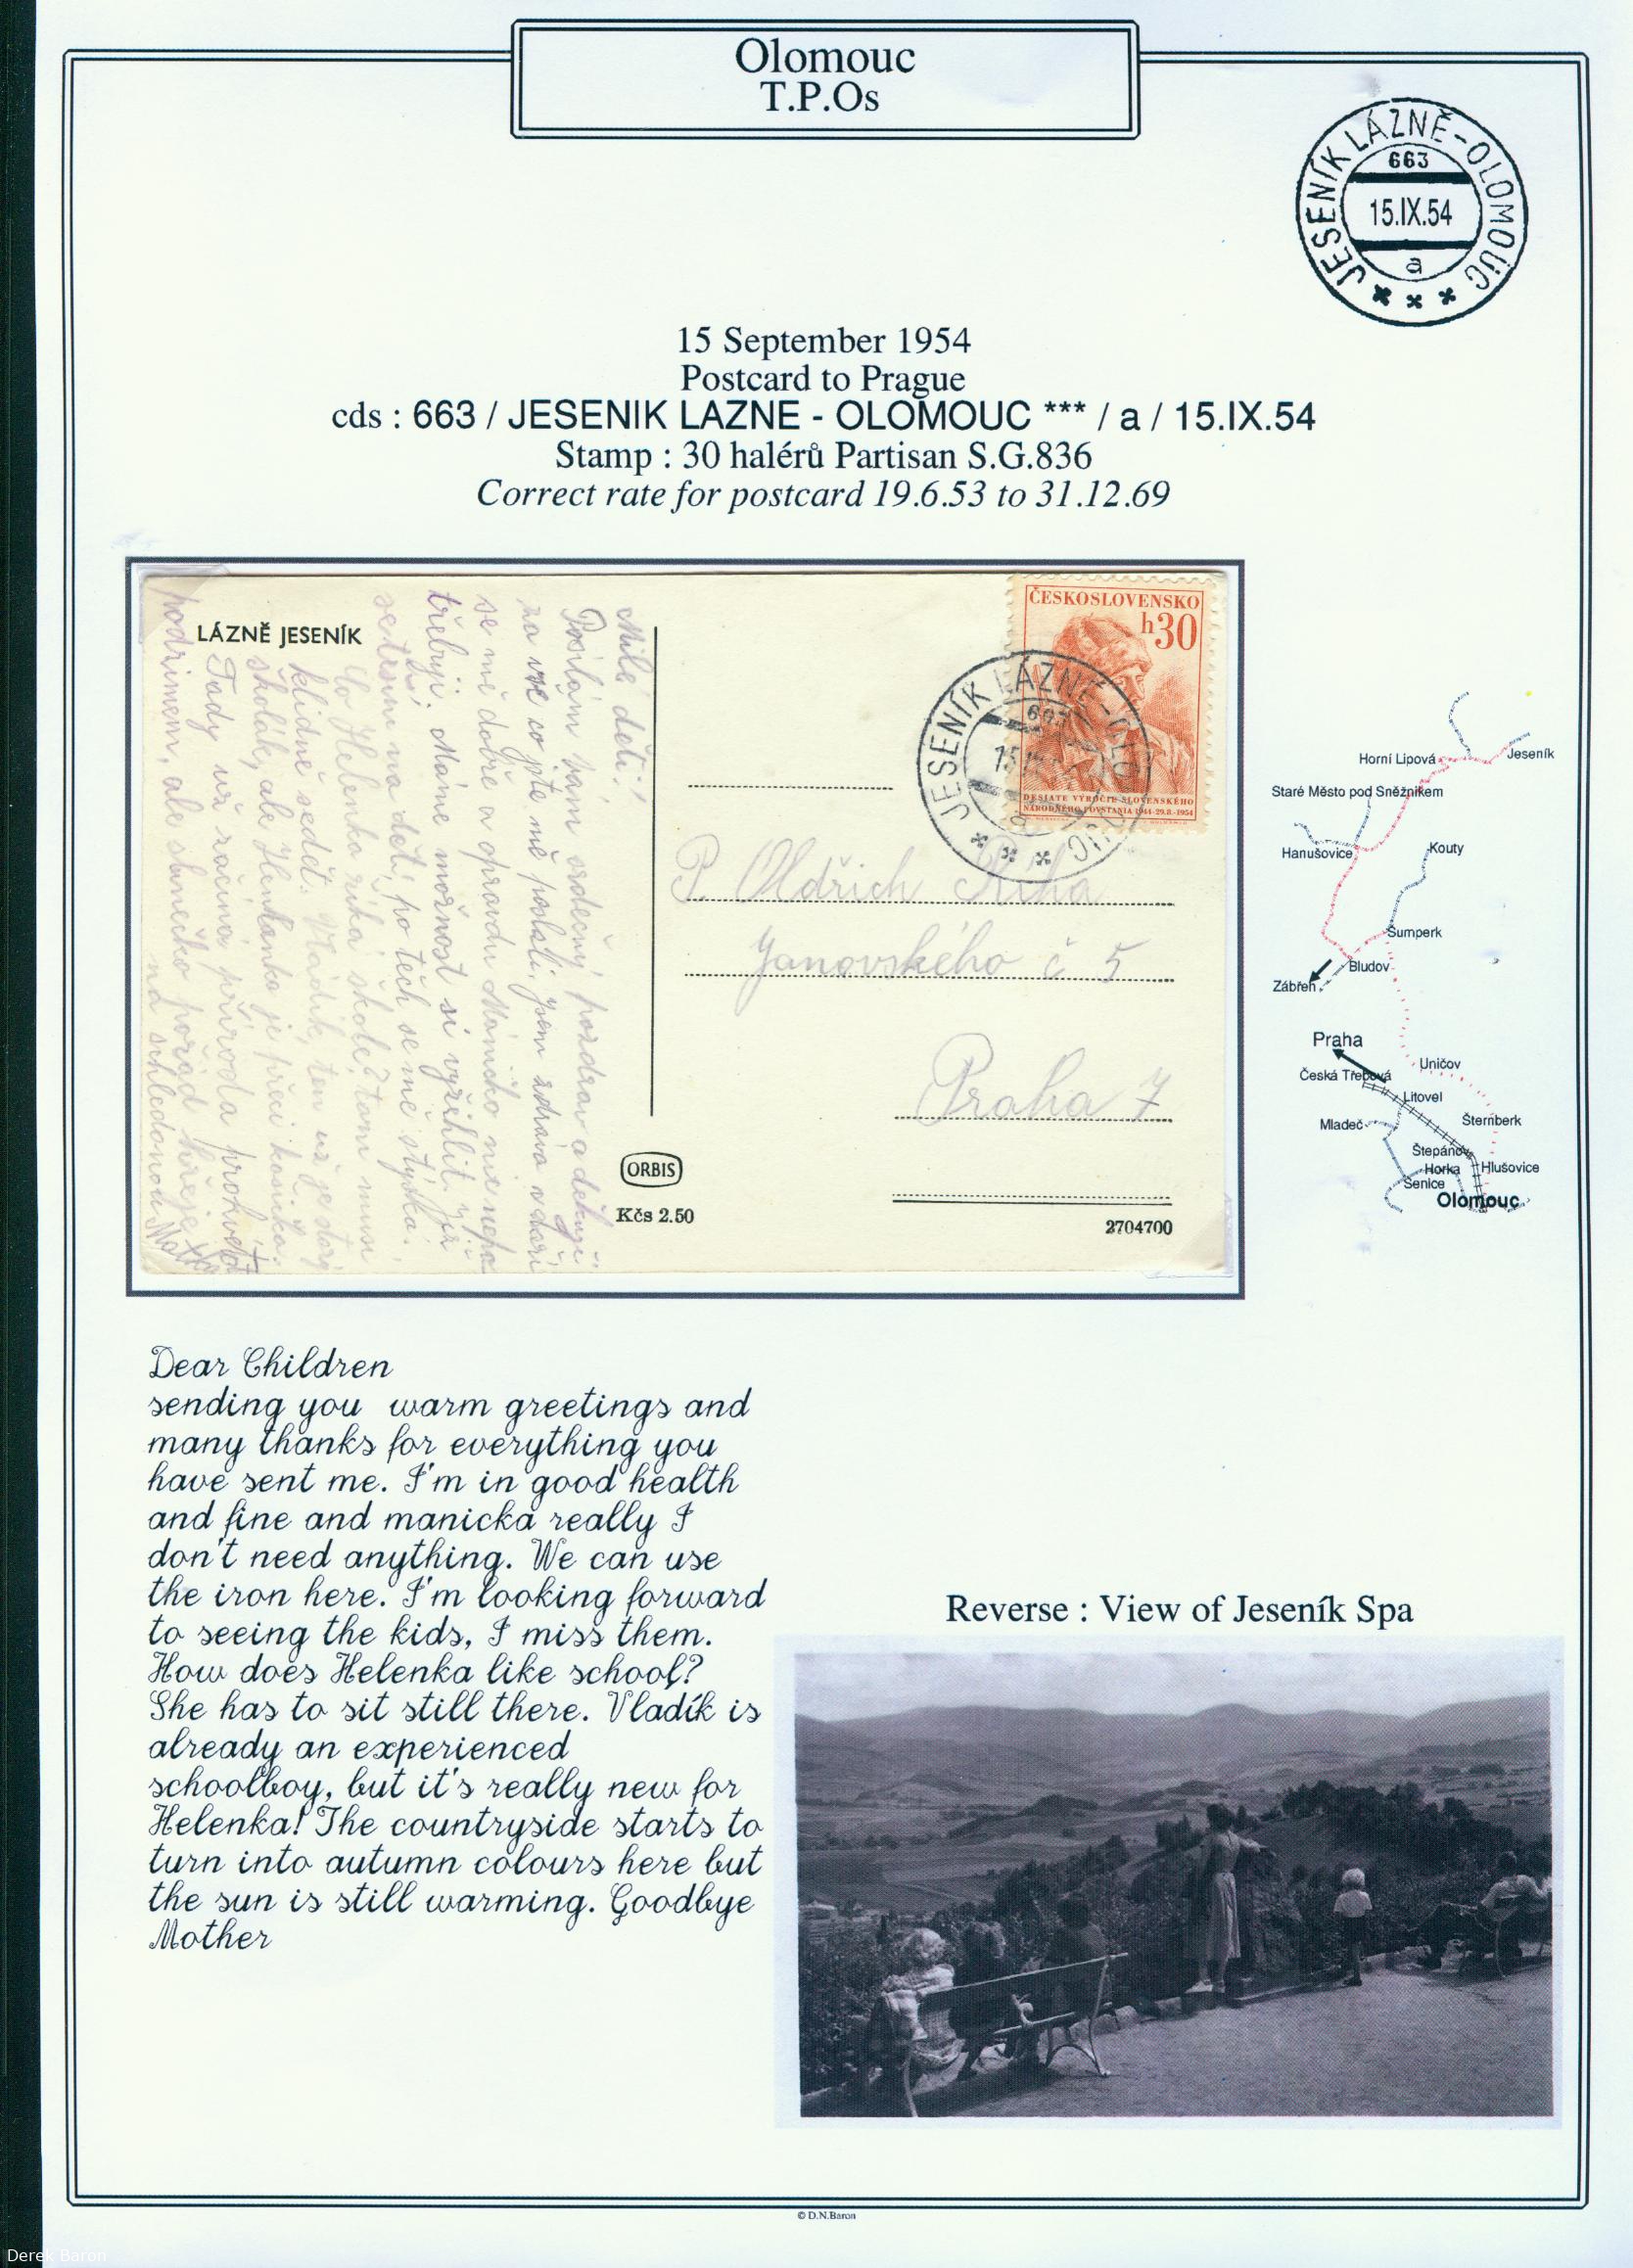 Olomouc
T.P.Os
JESENÍK LÁZNĚ-OLOMOUC
663
15.IX.54
a
15 September 1954
Postcard to Prague
cds : 663 / JESENIK LAZNE - OLOMOUC *** / a / 15.IX.54
Stamp : 30 halérů Partisan S.G.836
Correct rate for postcard 19.6.53 to 31.12.69
LÁZNĚ JESENÍK
Milé děti!
Posílám vám srdečný pozdrav a děkuji
za vše co jste mě poslali, jsem zdráva a daří
se mě dobře a opravdu Máničko nic nepo
třebuji. Máme možnost si vyžehlit, již
se těším na děti, po těch se mě stýská.
Co Helenka říká škole? tam musí
klidně sedět. Vládík, ten už je starý
školák, ale Helenka je přeci
Tady už začíná příroda
podzimem, ale sluníčko pořád hřeje
na shledanou
ČESKOSLOVENSKO
h30
DESIATE VÝROČIE SLOVENSKÉHO
NÁRODNÉHO POVSTANIA 1944-29.8.-1954
JESENÍK LÁZNĚ-OLOMOUC
663
15.IX
a
P. Oldřich Říha
Janovského č 5
Praha 7
ORBIS
Kčs 2.50
2704700
Horní Lipová
Jeseník
Staré Město pod Sněžníkem
Hanušovice
Kouty
Šumperk
Bludov
Zábřeh
Praha
Česká Třebová
Uničov
Litovel
Mladeč
Šternberk
Štepánov
Horka
Hlušovice
Senice
Olomouc
Dear Children
sending you warm greetings and
many thanks for everything you
have sent me. I'm in good health
and fine and manicka really I
don't need anything. We can use
the iron here. I'm looking forward
to seeing the kids, I miss them.
How does Helenka like school?
She has to sit still there. Vladík is
already an experienced
schoolboy, but it's really new for
Helenka! The countryside starts to
turn into autumn colours here but
the sun is still warming. Goodbye
Mother
Reverse : View of Jeseník Spa
© D.N.Baron
Derek Baron